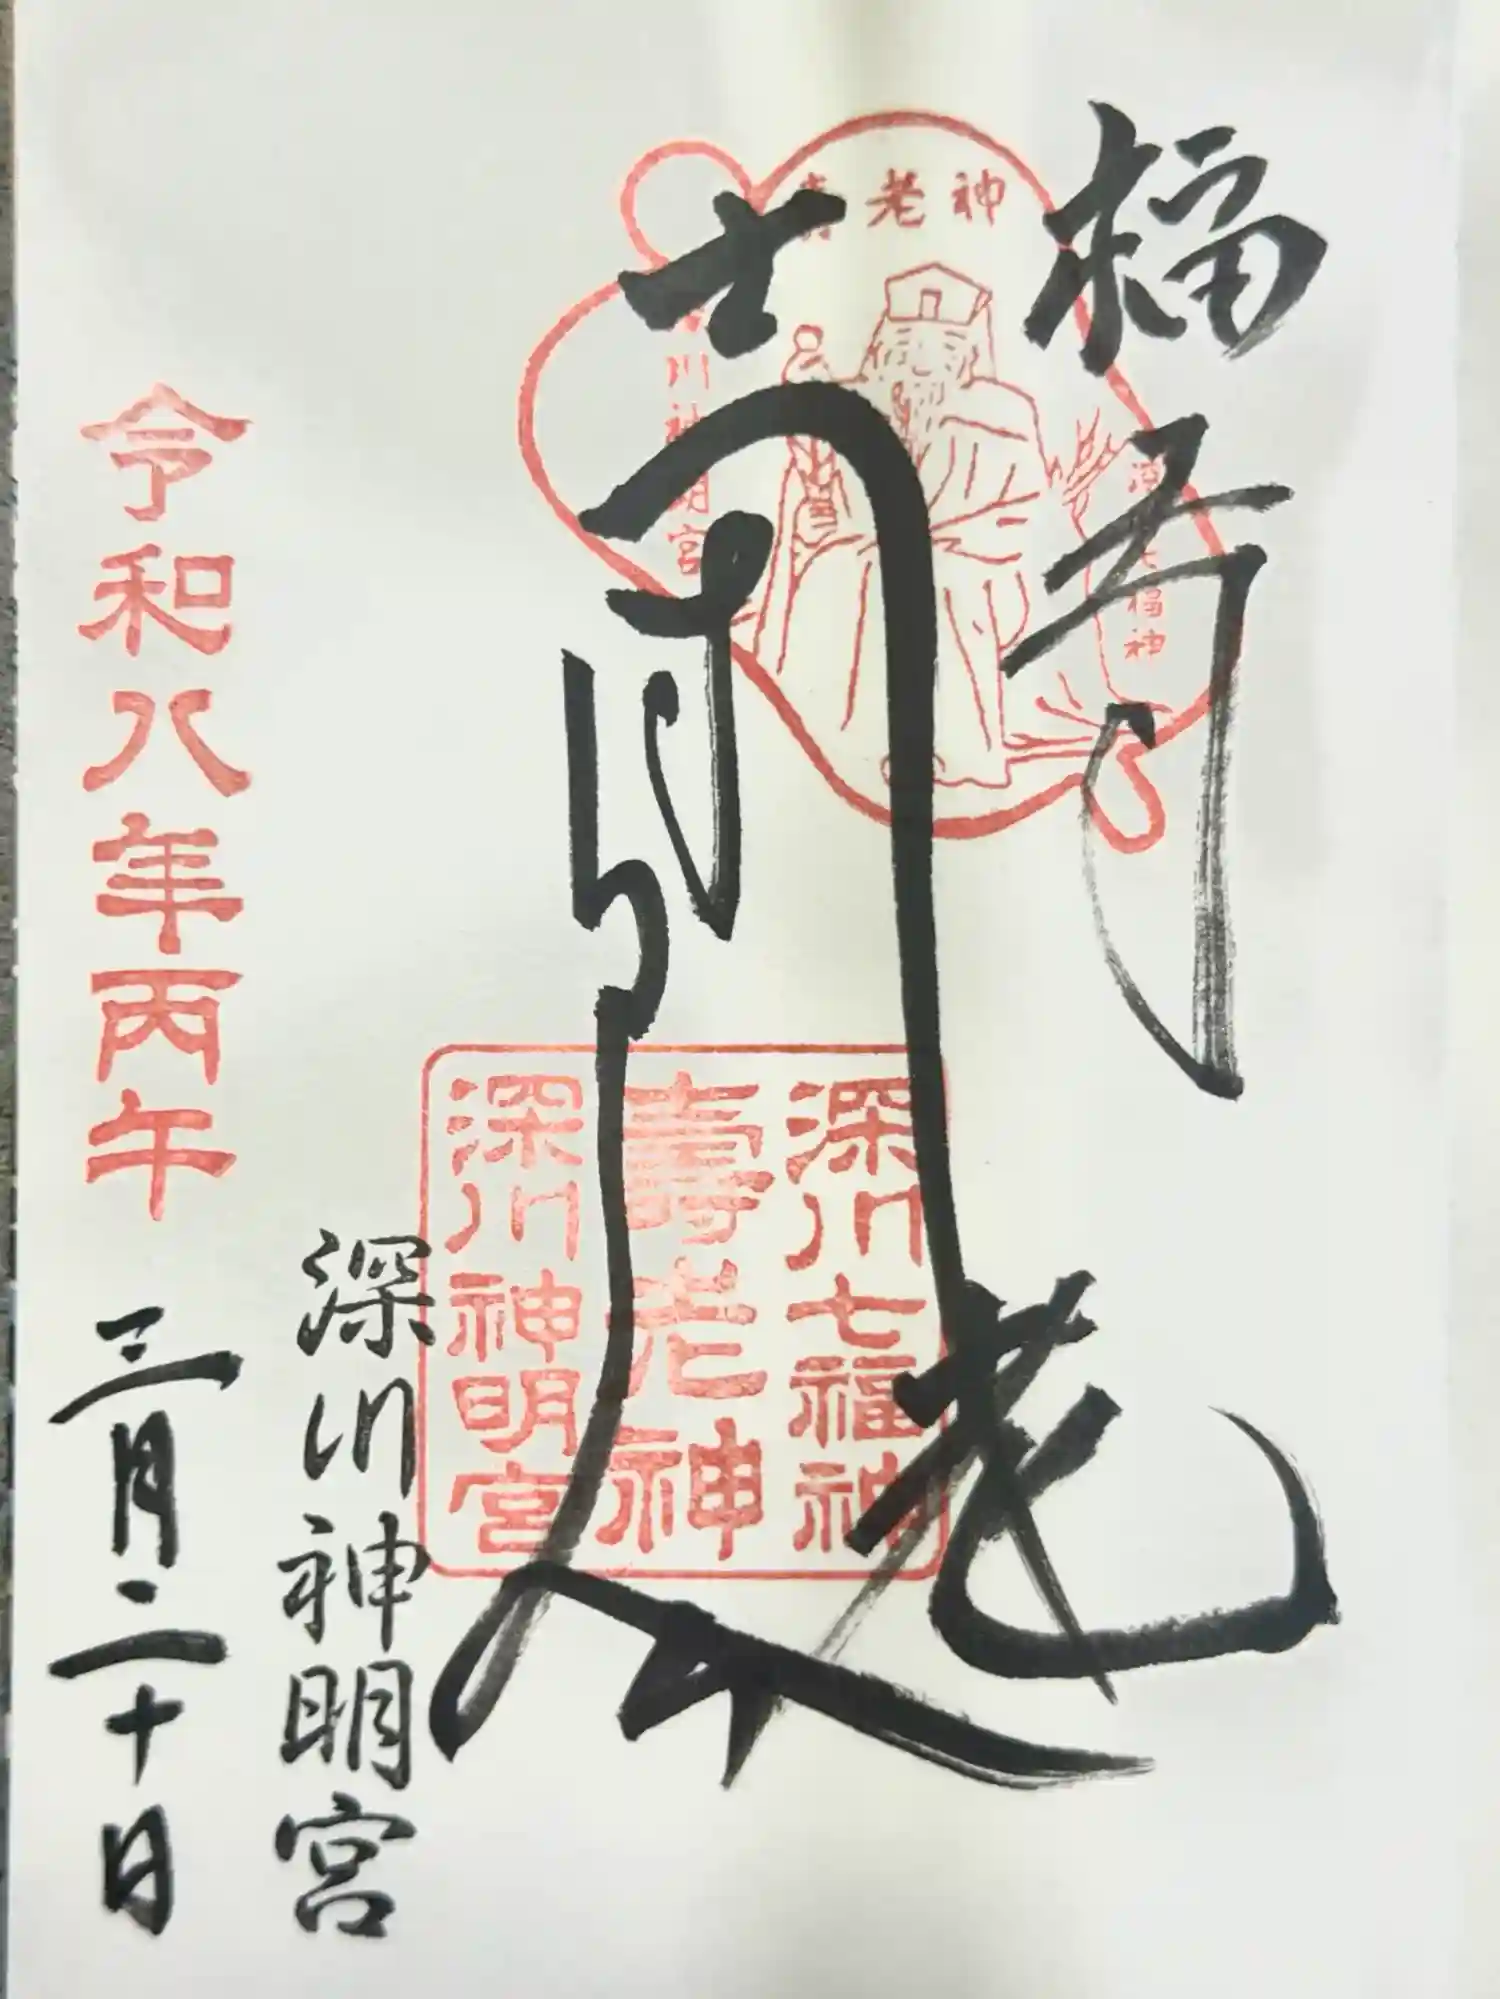 福寿
老神
川神明宮
七福神
老
深川七福神
壽老神
深川神明宮
深川神明宮
令和八年丙午
三月二十日